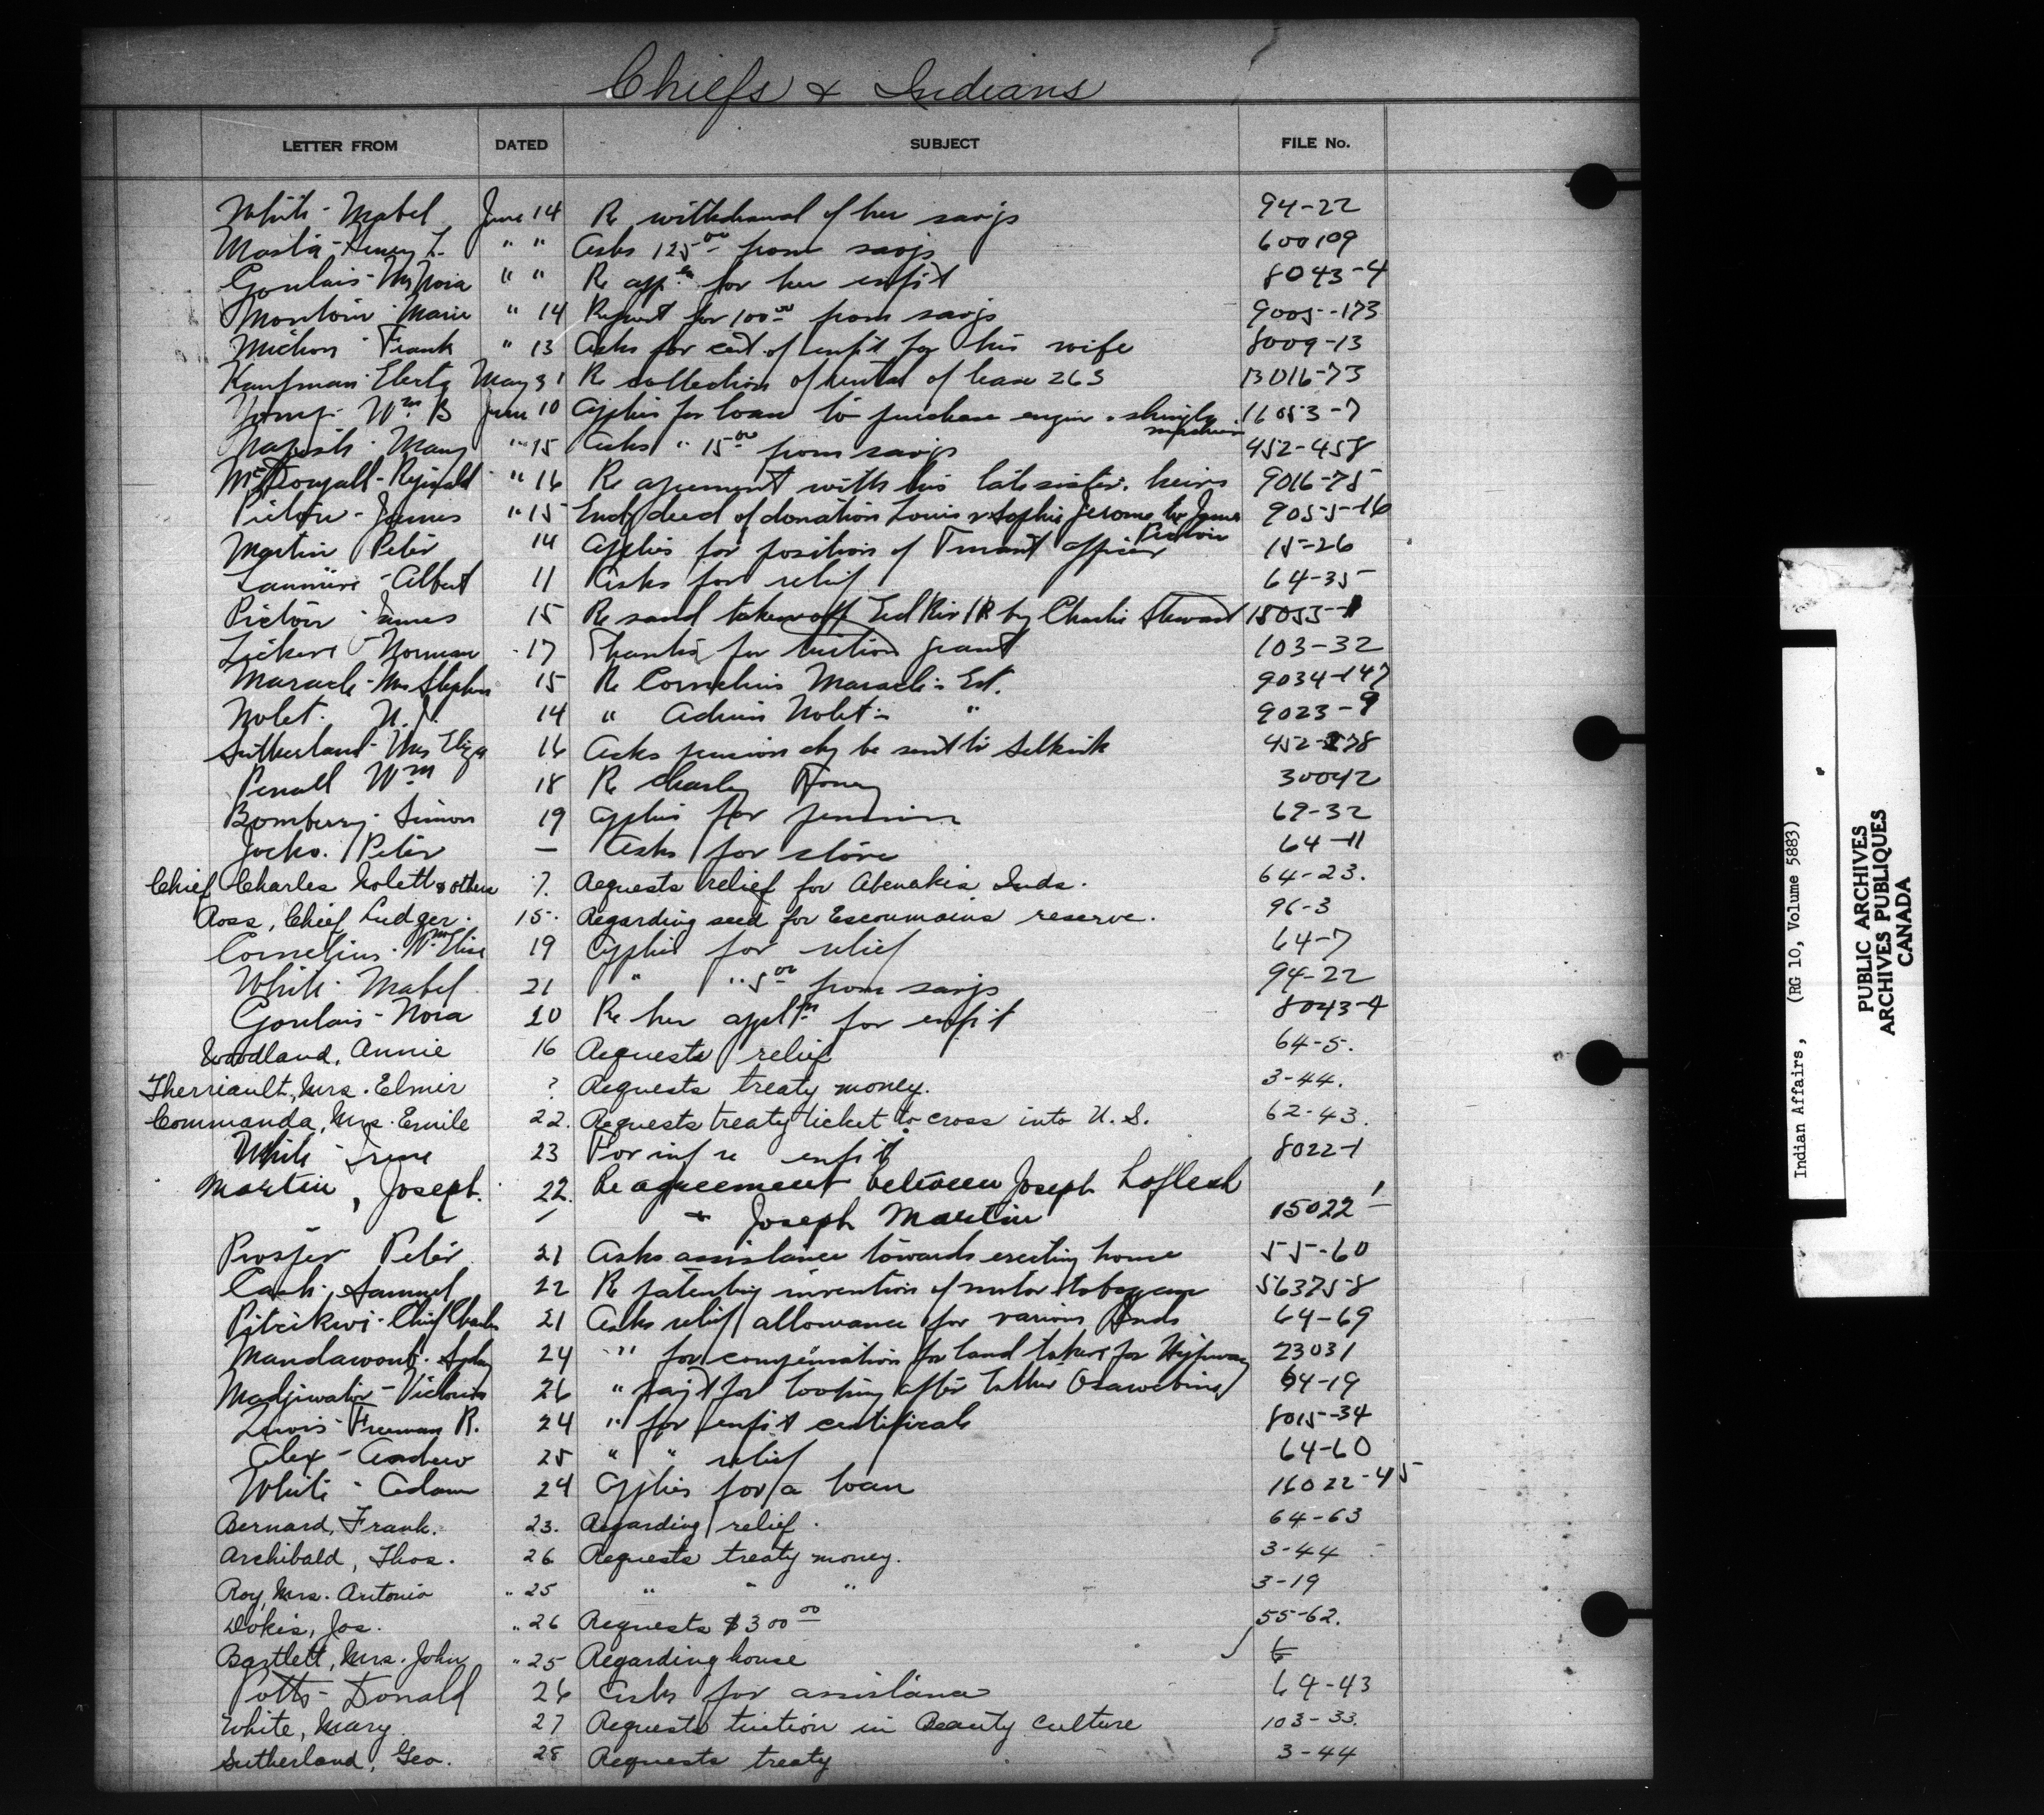 Chiefs & Indians
LETTER FROM DATED SUBJECT FILE No.
White - Mabel June 14 Re withdrawal of her savgs 94-22
Masta - Henry L. " " Asks 125 00 from savgs 600109
Goulais - Mrs Nora " " Re appln for her enfit 8043-4
Montour - Marie " 14 Request for 100 00 from savgs 9005-173
Michon - Frank " 13 Asks for cert of enfit for his wife 8009-13
Kaufman - Electa May 31 Re collection of rental of lease 263 13016-73
Wm B June 10 Applies for loan to purchase engine & shingle machine 11053-7
Mary " 15 Asks " 15 00 from savgs 452-458
McDougall - Reginald " 16 Re agreement with his late sister's heirs 9016-75
Pictou - James " 15 Encl deed of donation Louis & Sophie Jerome to James Pictou 9055-16
Martin Peter 14 Applies for position of Truant officer 15-26
Lanniere - Albert 11 Asks for relief 64-35
Pictou - James 15 Re sand taken off Eel Riv IR by Charlie Steward 15053-1
Lickers - Norman 17 Thanks for tuition grant 103-32
Maracle - Mrs Stephen 15 Re Cornelius Maracle's Est. 9034-147
Nolet. 14 " Nolet's " 9023-9
Sutherland - Mrs Eliza 16 Asks pension chq be sent to Selkirk 452-578
Wm 18 Re Charley 30042
Bomberry - Simon 19 Applies for pension 69-32
Jocko. Peter — Asks for stove 64-11
Chief Charles Nolett & others 7. Requests relief for Abenakis Inds. 64-23.
Ross, Chief Ludger. 15. Regarding seed for Escoumains reserve. 96-3
Cornelius. Mrs Elise 19 Applies for relief 64-7
White - Mabel 21 " " 5 00 from savgs 94-22
Goulais - Nora 20 Re her appltn for enfit 8043-4
Woodland, Annie 16 Requests relief 64-5.
Therriault, Mrs. Elmer ? Requests treaty money. 3-44.
Commanda, Mrs. Emile 22. Requests treaty ticket to cross into U.S. 62-43.
White - Irene 23 For inf re enfit 8022-1
Martin, Joseph. 22. Re agreement between Joseph Laflesh
& Joseph Martin 15022-1
Prosper Peter 21 Asks assistance towards erecting house 55-60
Cash, Samuel 22 Re patenting invention of motor toboggan 563758
Pitzikwi - Chief Charles 21 Asks relief allowance for various Inds 64-69
24 " for compensation for land taken for Highway 23031
Victoria 26 " paymt for looking after Osawabine 64-19
Lewis - Freeman R. 24 " for enfit certificate 8015-34
Alex - Andrew 25 " " relief 64-60
White - Adam 24 Applies for a loan 16022-45
Bernard, Frank. 23. Regarding relief. 64-63
Archibald, Thos. 26 Requests treaty money. 3-44
Roy, Mrs. Antonio " 25 " " " 3-19
Dokis, Jos. " 26 Requests $300 00 55-62.
Bartlett, Mrs. John " 25 Regarding house
Potts - Donald 26 Asks for assistance 64-43
White, Mary. 27 Requests tuition in Beauty Culture 103-33.
Sutherland, Geo. 28 Requests treaty 3-44
Indian Affairs, (RG 10, Volume 5883)
PUBLIC ARCHIVES
ARCHIVES PUBLIQUES
CANADA